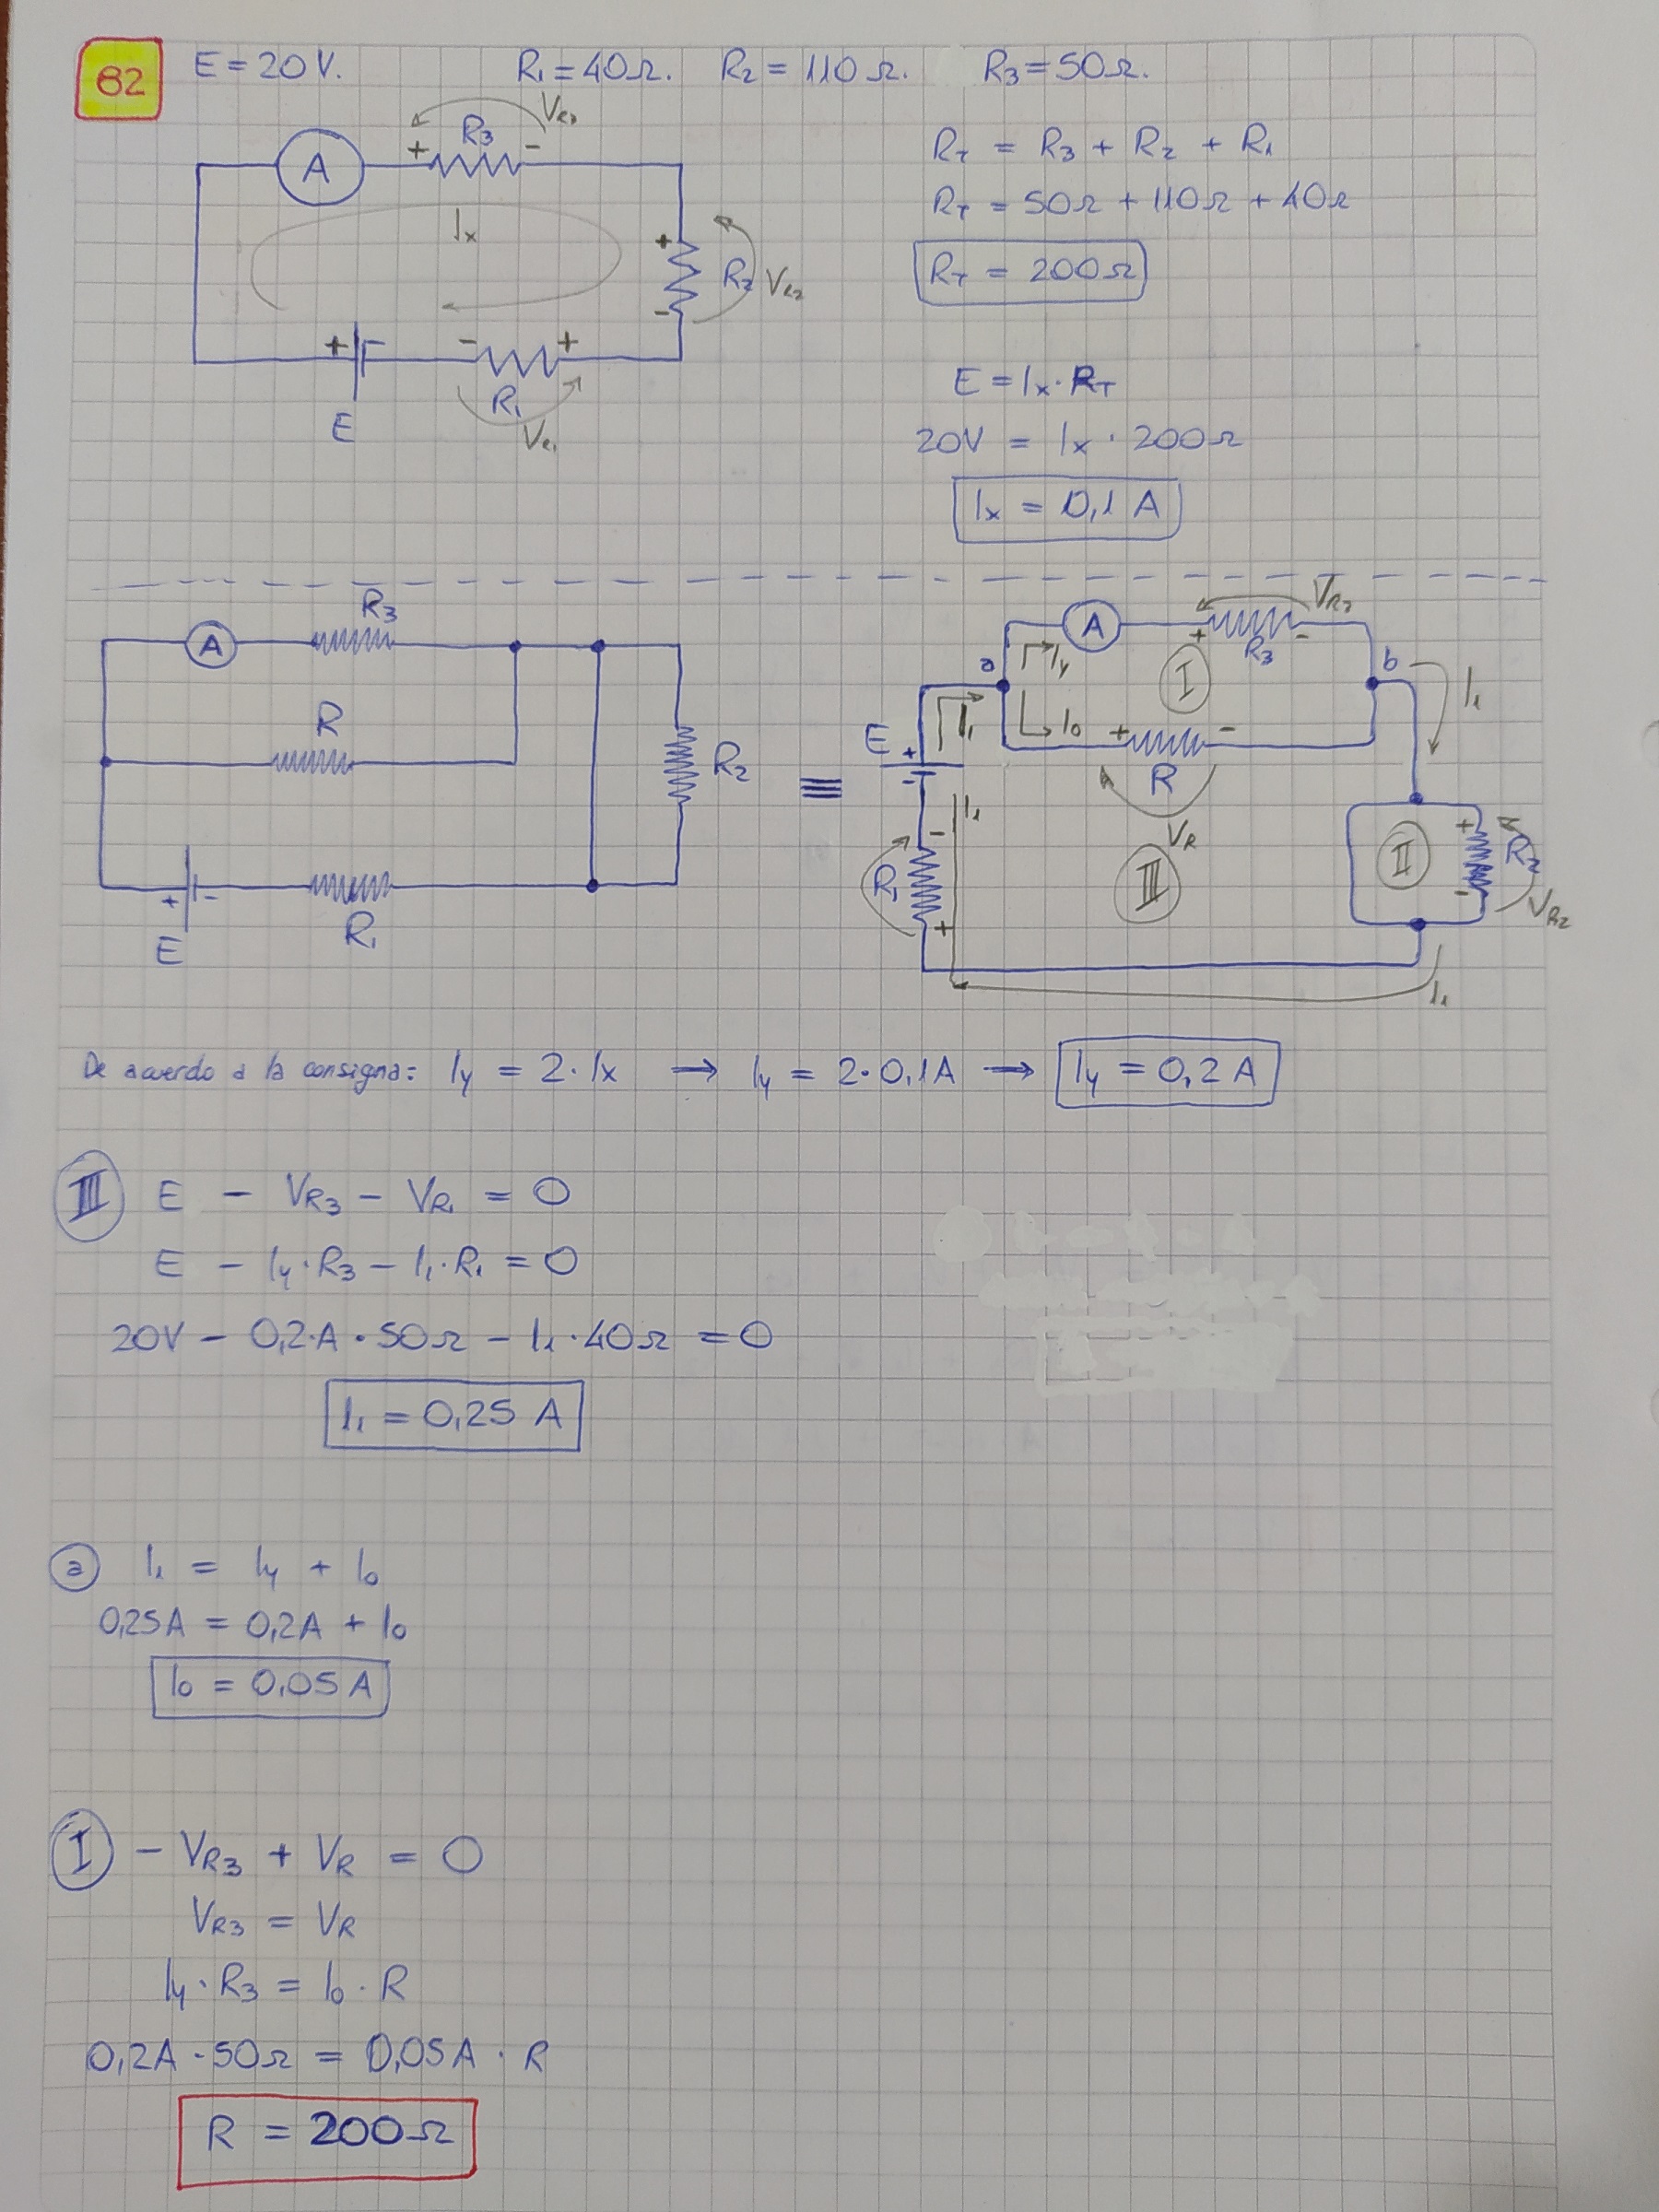 82 E = 20 V. R₁ = 40Ω. R₂ = 110 Ω. R₃ = 50Ω.
V_R₃
R₃
+ -
A
Iₓ
+
R₂ V_R₂
-
+ - - +
R₁
E V_R₁
R_T = R₃ + R₂ + R₁
R_T = 50Ω + 110Ω + 40Ω
R_T = 200Ω
E = Iₓ · R_T
20V = Iₓ · 200Ω
Iₓ = 0,1 A
R₃
A
R
R₂
+ -
E
R₁
≡
V_R₃
A
+ -
R₃
a I_y I b I₁
I₁ I₀ + -
E + R
-
I₁ V_R
-
R₁ III
+
II + R₂
-
V_R₂
I₁
De acuerdo a la consigna: I_y = 2 · Iₓ → I_y = 2 · 0,1A → I_y = 0,2 A
III E - V_R₃ - V_R₁ = 0
E - I_y · R₃ - I₁ · R₁ = 0
20V - 0,2·A · 50Ω - I₁ · 40Ω = 0
I₁ = 0,25 A
a I₁ = I_y + I₀
0,25A = 0,2A + I₀
I₀ = 0,05 A
I - V_R₃ + V_R = 0
V_R₃ = V_R
I_y · R₃ = I₀ · R
0,2A · 50Ω = 0,05A · R
R = 200Ω